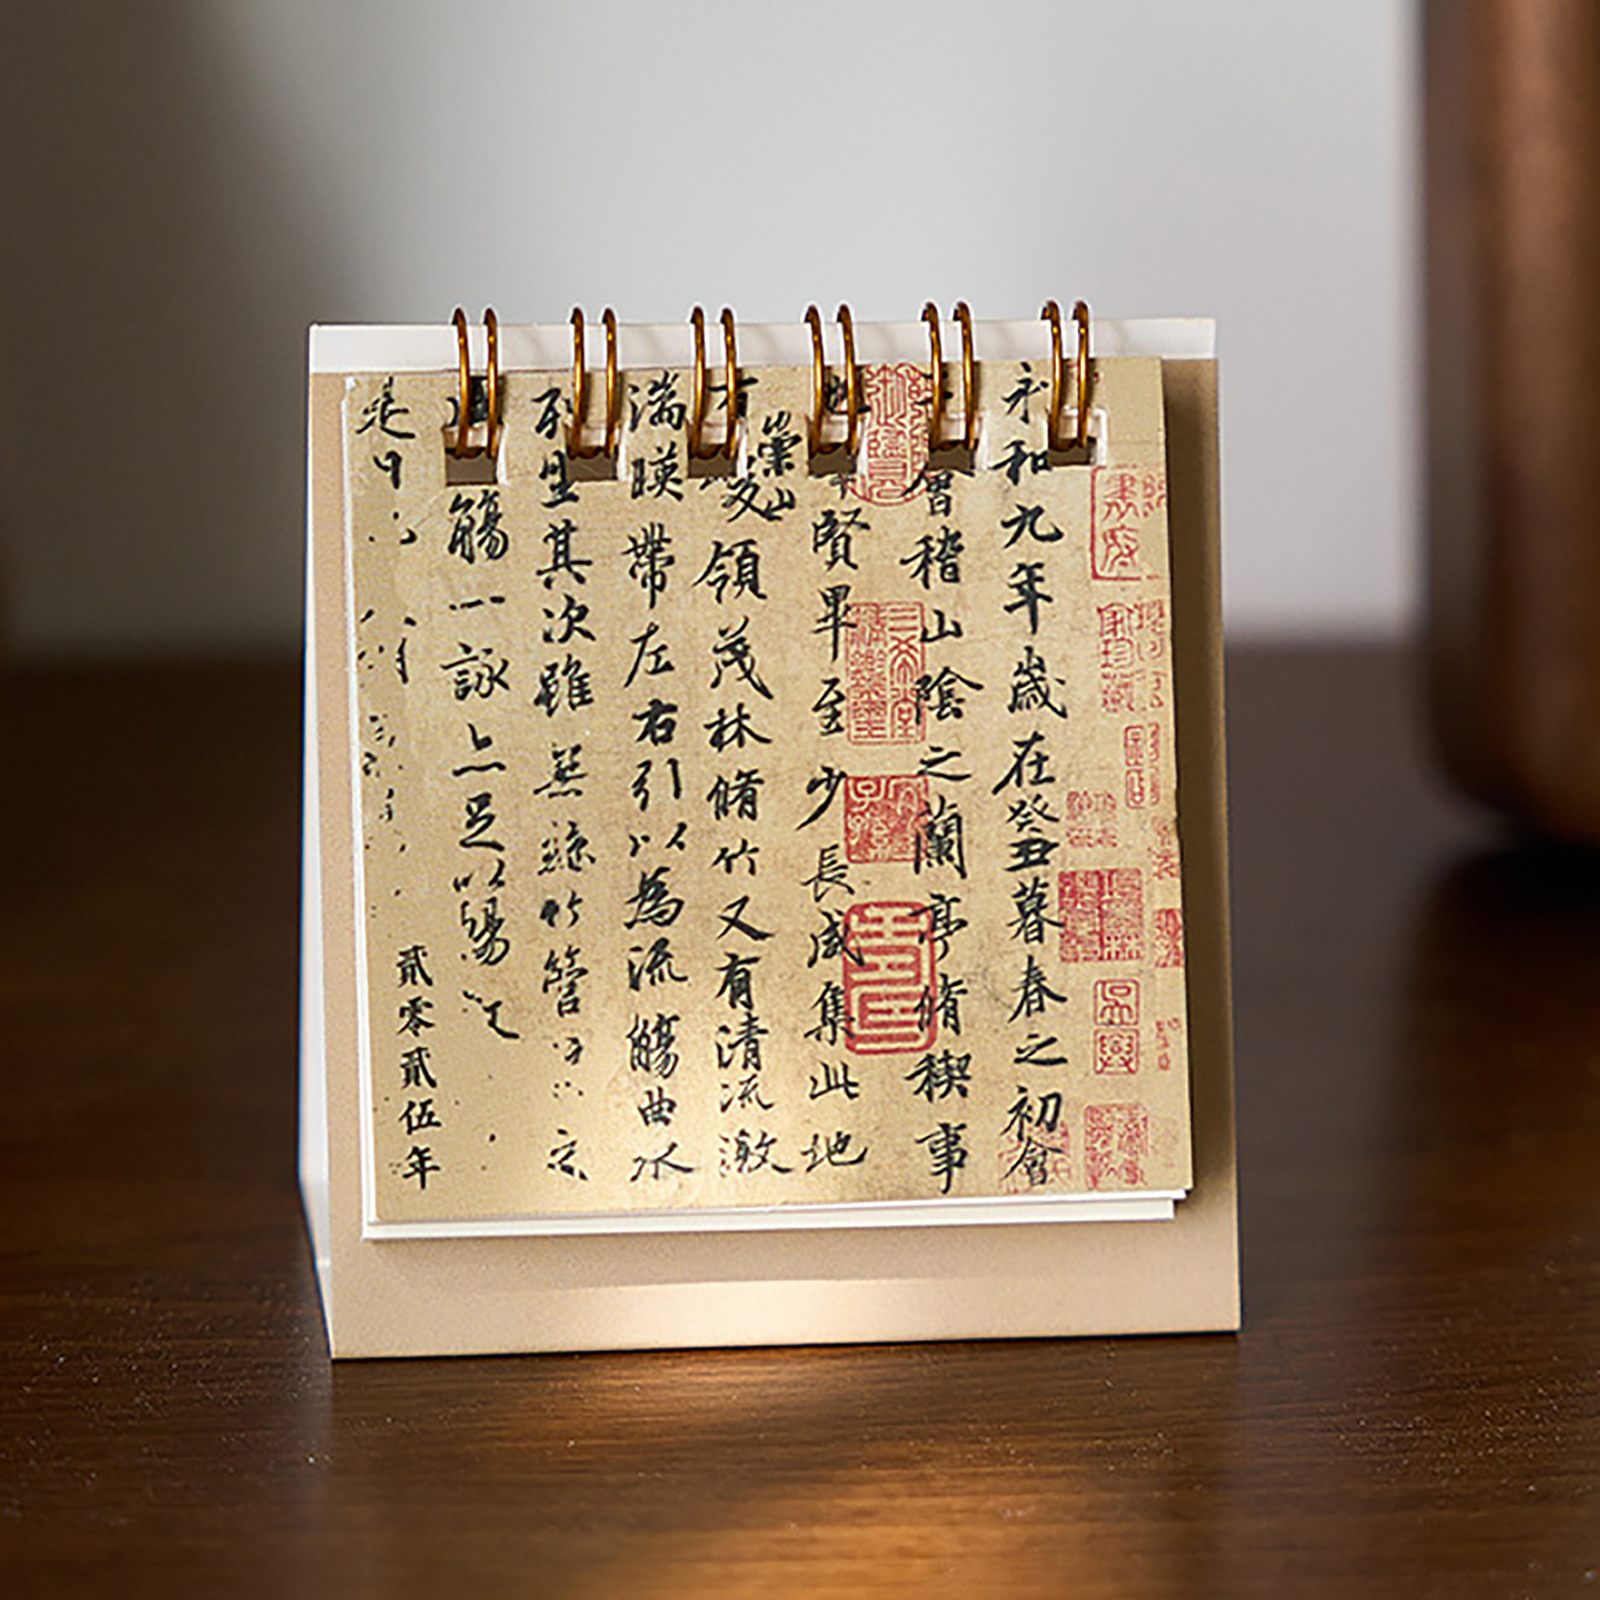 永和九年歲在癸丑暮春之初會
會稽山陰之蘭亭脩稧事
也賢畢至少長咸集此地
有崇山領茂林脩竹又有清流激
湍暎帶左右引以為流觴曲水
列坐其次雖無絲竹管
觴一詠亦足以暢
是日
貳零貳伍年